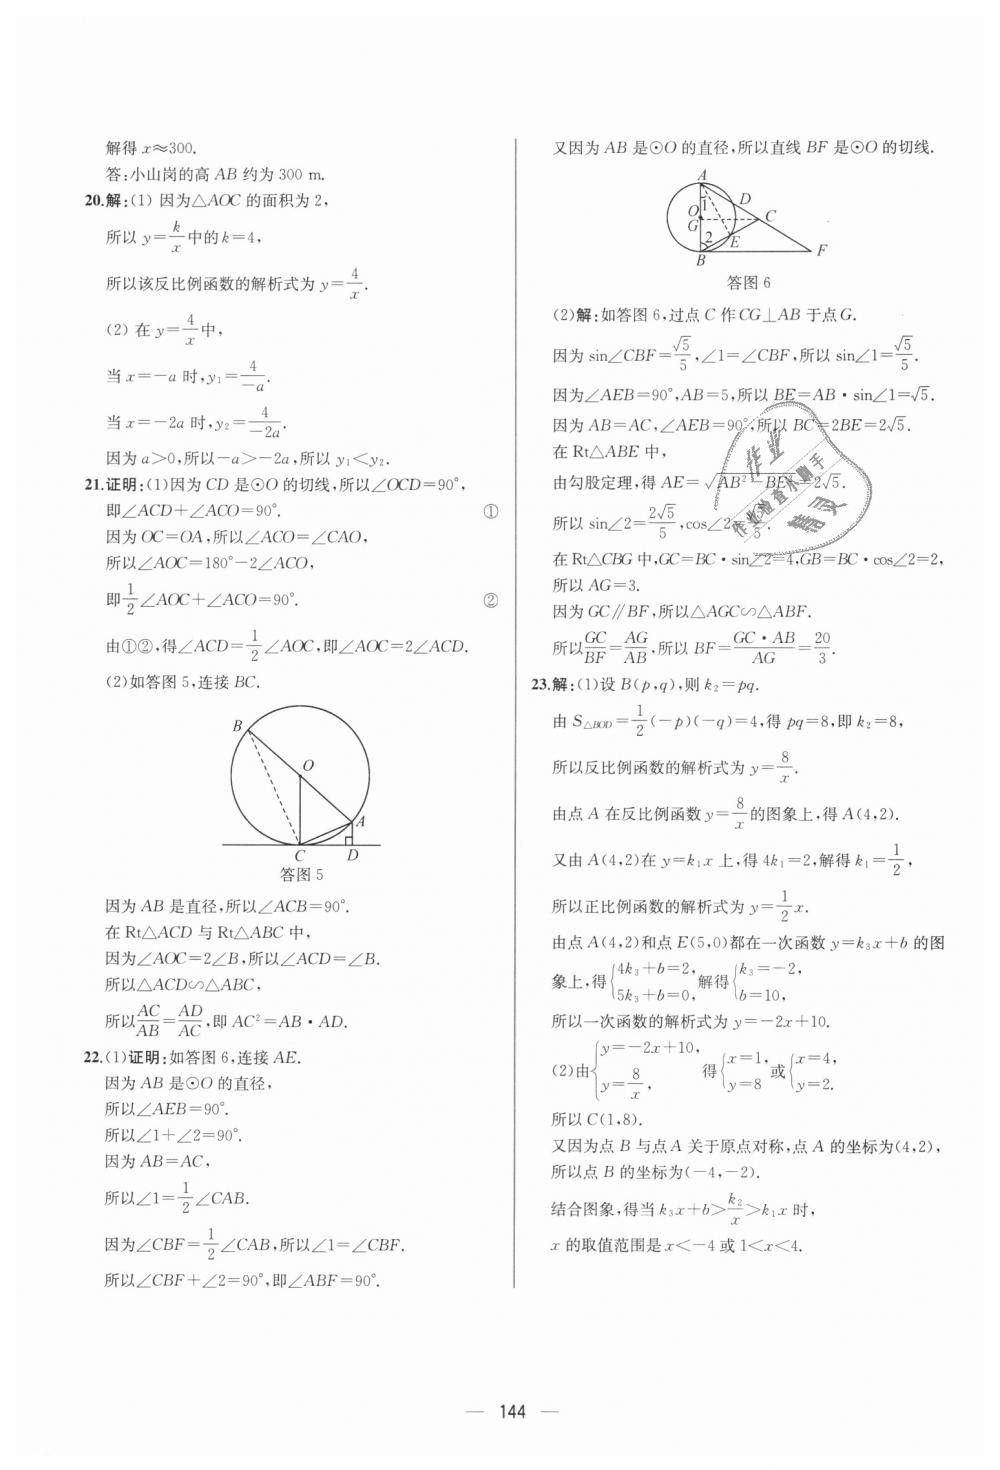 解得 x≈300.
答:小山岗的高 AB 约为 300 m.
20.解:(1) 因为△AOC 的面积为 2,
所以 y=k/x 中的 k=4,
所以该反比例函数的解析式为 y=4/x.
(2) 在 y=4/x 中,
当 x=-a 时,y₁=4/-a.
当 x=-2a 时,y₂=4/-2a.
因为 a>0,所以-a>-2a,所以 y₁<y₂.
21.证明:(1)因为 CD 是⊙O 的切线,所以∠OCD=90°,
即∠ACD+∠ACO=90°. ①
因为 OC=OA,所以∠ACO=∠CAO,
所以∠AOC=180°-2∠ACO,
即1/2∠AOC+∠ACO=90°. ②
由①②,得∠ACD=1/2∠AOC,即∠AOC=2∠ACD.
(2)如答图 5,连接 BC.
B
O
A
C
D
答图 5
因为 AB 是直径,所以∠ACB=90°.
在 Rt△ACD 与 Rt△ABC 中,
因为∠AOC=2∠B,所以∠ACD=∠B.
所以△ACD∽△ABC,
所以AC/AB=AD/AC,即 AC²=AB·AD.
22.(1)证明:如答图 6,连接 AE.
因为 AB 是⊙O 的直径,
所以∠AEB=90°.
所以∠1+∠2=90°.
因为 AB=AC,
所以∠1=1/2∠CAB.
因为∠CBF=1/2∠CAB,所以∠1=∠CBF.
所以∠CBF+∠2=90°,即∠ABF=90°.
又因为 AB 是⊙O 的直径,所以直线 BF 是⊙O 的切线.
A
1
D
O
G
C
2
E
B
F
答图 6
(2)解:如答图 6,过点 C 作 CG⊥AB 于点 G.
因为 sin∠CBF=√5/5,∠1=∠CBF,所以 sin∠1=√5/5.
因为∠AEB=90°,AB=5,所以 BE=AB·sin∠1=√5.
因为 AB=AC,∠AEB=90°,所以 BC=2BE=2√5.
在 Rt△ABE 中,
由勾股定理,得 AE=√AB²-BE²=2√5.
所以 sin∠2=2√5/5,cos∠2=√5/5.
在 Rt△CBG 中,GC=BC·sin∠2=4,GB=BC·cos∠2=2,
所以 AG=3.
因为 GC∥BF,所以△AGC∽△ABF.
所以GC/BF=AG/AB,所以 BF=GC·AB/AG=20/3.
23.解:(1)设 B(p,q),则 k₂=pq.
由 S△BOD=1/2(-p)(-q)=4,得 pq=8,即 k₂=8,
所以反比例函数的解析式为 y=8/x.
由点 A 在反比例函数 y=8/x的图象上,得 A(4,2).
又由 A(4,2)在 y=k₁x 上,得 4k₁=2,解得 k₁=1/2,
所以正比例函数的解析式为 y=1/2x.
由点 A(4,2)和点 E(5,0)都在一次函数 y=k₃x+b 的图
象上,得{4k₃+b=2, 5k₃+b=0,解得{k₃=-2, b=10,
所以一次函数的解析式为 y=-2x+10.
(2)由{y=-2x+10, y=8/x, 得{x=1, y=8 或{x=4, y=2.
所以 C(1,8).
又因为点 B 与点 A 关于原点对称,点 A 的坐标为(4,2),
所以点 B 的坐标为(-4,-2).
结合图象,得当 k₃x+b>k₂/x>k₁x 时,
x 的取值范围是 x<-4 或 1<x<4.
作业
作业检查小助手
精灵
— 144 —